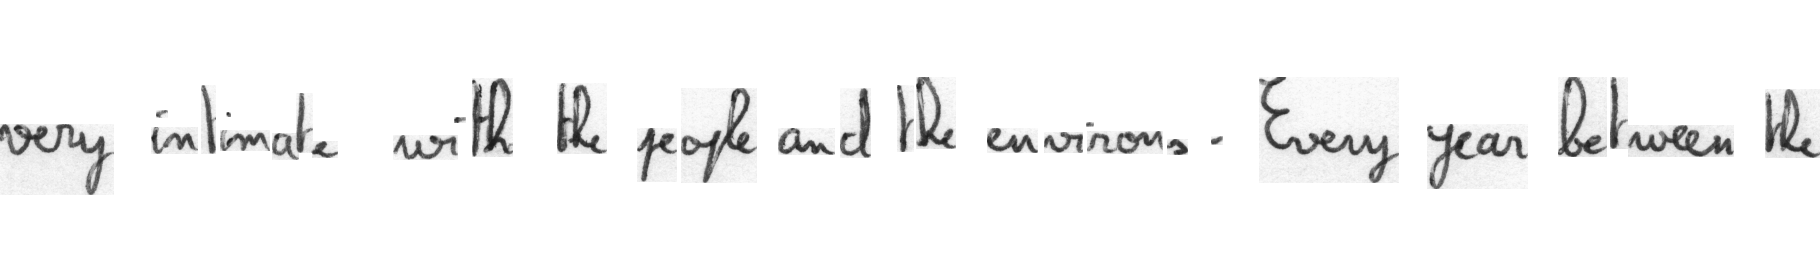 very intimate with the people and the environs. Every year between the